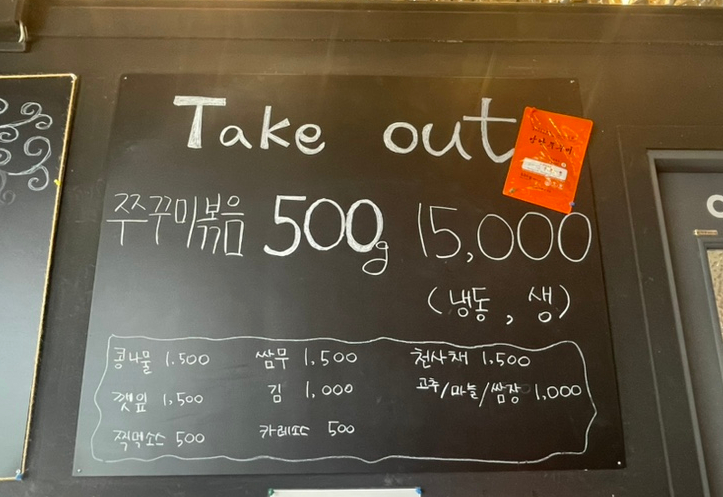 Take out
쭈꾸미볶음 500g 15,000
(냉동, 생)
콩나물 1.500 쌈무 1,500 천사채 1,500
깻잎 1,500 김 1,000 고추/마늘/쌈장 1,000
찍먹소스 500 카레소스 500